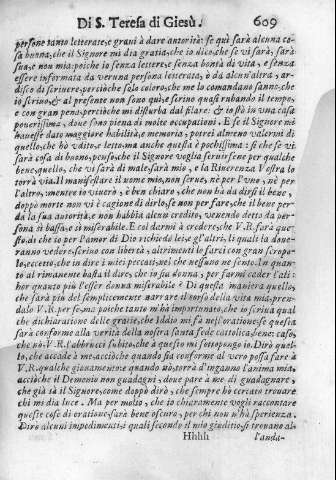 Di S. Teresa di Giesù. 609
persone tanto letterate, e grani à dare autorità: se quì sarà alcuna co-
sa buona, che il Signore mi dia gratia, che io dica, che se vi sarà, sarà
sua, e non mia: poiche io senza lettere, e senza bontà di vita, e senza
essere informata da veruna persona letterata, ò da alcun'altra, ar-
disco di scriuere, perciòche solo coloro, che me lo comandano sanno, che
io scriuo, & al presente non sono quì, e scriuo quasi rubando il tempo,
e con gran pena, perciòche mi disturba dal filare: & io stò in vna casa
pouerissima, doue sono piena di molte occupationi. E se il Signore mi
hauesse dato maggiore habilità, e memoria, potrei almeno valermi di
quello, che hò vdito, e letto, ma anche questa è pochissima: sì che se vi
sarà cosa di buono, penso, che il Signore voglia seruirsene per qualche
bene, quello, che vi sarà di male, sarà mio, e la Riuerenza Vostra lo
torrà via. Il manifestare il nome mio, non serue, nè per l'vno, nè per
l'altro, mentre io viuerò, è ben chiaro, che non hà da dirsi il bene,
doppò morte non vi è cagione di dirlo, se non per fare, che il bene per-
da la sua autorità, e non habbia alcun credito, venendo detto da per-
sona sì bassa, e sì miserabile. E col darmi à credere, che V.R. farà que-
sto, di che io per l'Amor di Dio richiedo lei, e gl'altri, li quali la doue-
ranno vedere, scriuo con libertà, altrimenti lo farei con gran scrupo-
lo, eccetto, che in dire i miei peccati, nel che nessuno ne sento. In quan-
to al rimanente basta il dire, che io sia donna, per farmi cader l'ali:
hor quanto più l'esser donna miserabile? Di questa maniera quello,
che sarà più del semplicemente narrare il corso della vita mia, pren-
dalo V.R. per se, ma poiche tanto m'hà importunato, che io scriua qual
che dichiaratione delle gratie, che Iddio mi fà nell'oratione, se questa
sarà conforme alla verità della nostra santa fede cattolica, bene: caso,
che nò. V.R. l'abbrucci subito, che à questo mi sottopongo io. Dirò quel-
lo, che accade à me, acciòche quando sia conforme al vero possa fare à
V.R. qualche giouamento, e quando nò, torrà d'inganni l'anima mia,
acciòche il Demonio non guadagni, doue pare à me di guadagnare,
che già sà il Signore, come doppò dirò, che sempre hò cercato trouare
chi mi dia luce. Ma per molto, che io chiaramente vogli raccontare
queste cose di oratione, sarà bene oscura, per chi non n'hà sperienza.
Dirò alcuni impedimenti, i quali secondo il mio giuditio, si trouano al-
Hhhh l'anda-